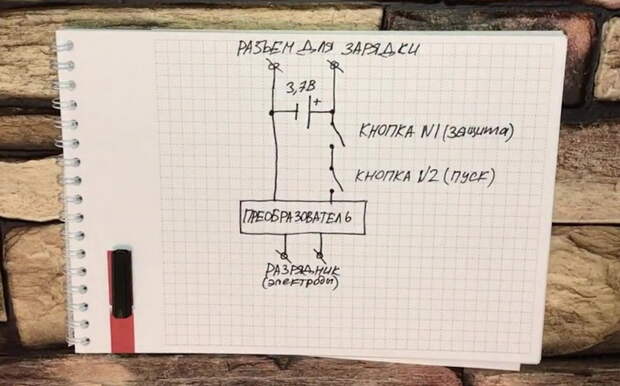 РАЗЪЕМ ДЛЯ ЗАРЯДКИ
3,7В
+
КНОПКА N1 (защита)
КНОПКА N2 (ПУСК)
ПРЕОБРАЗОВАТЕЛЬ
РАЗРЯДНИК
(электроды)